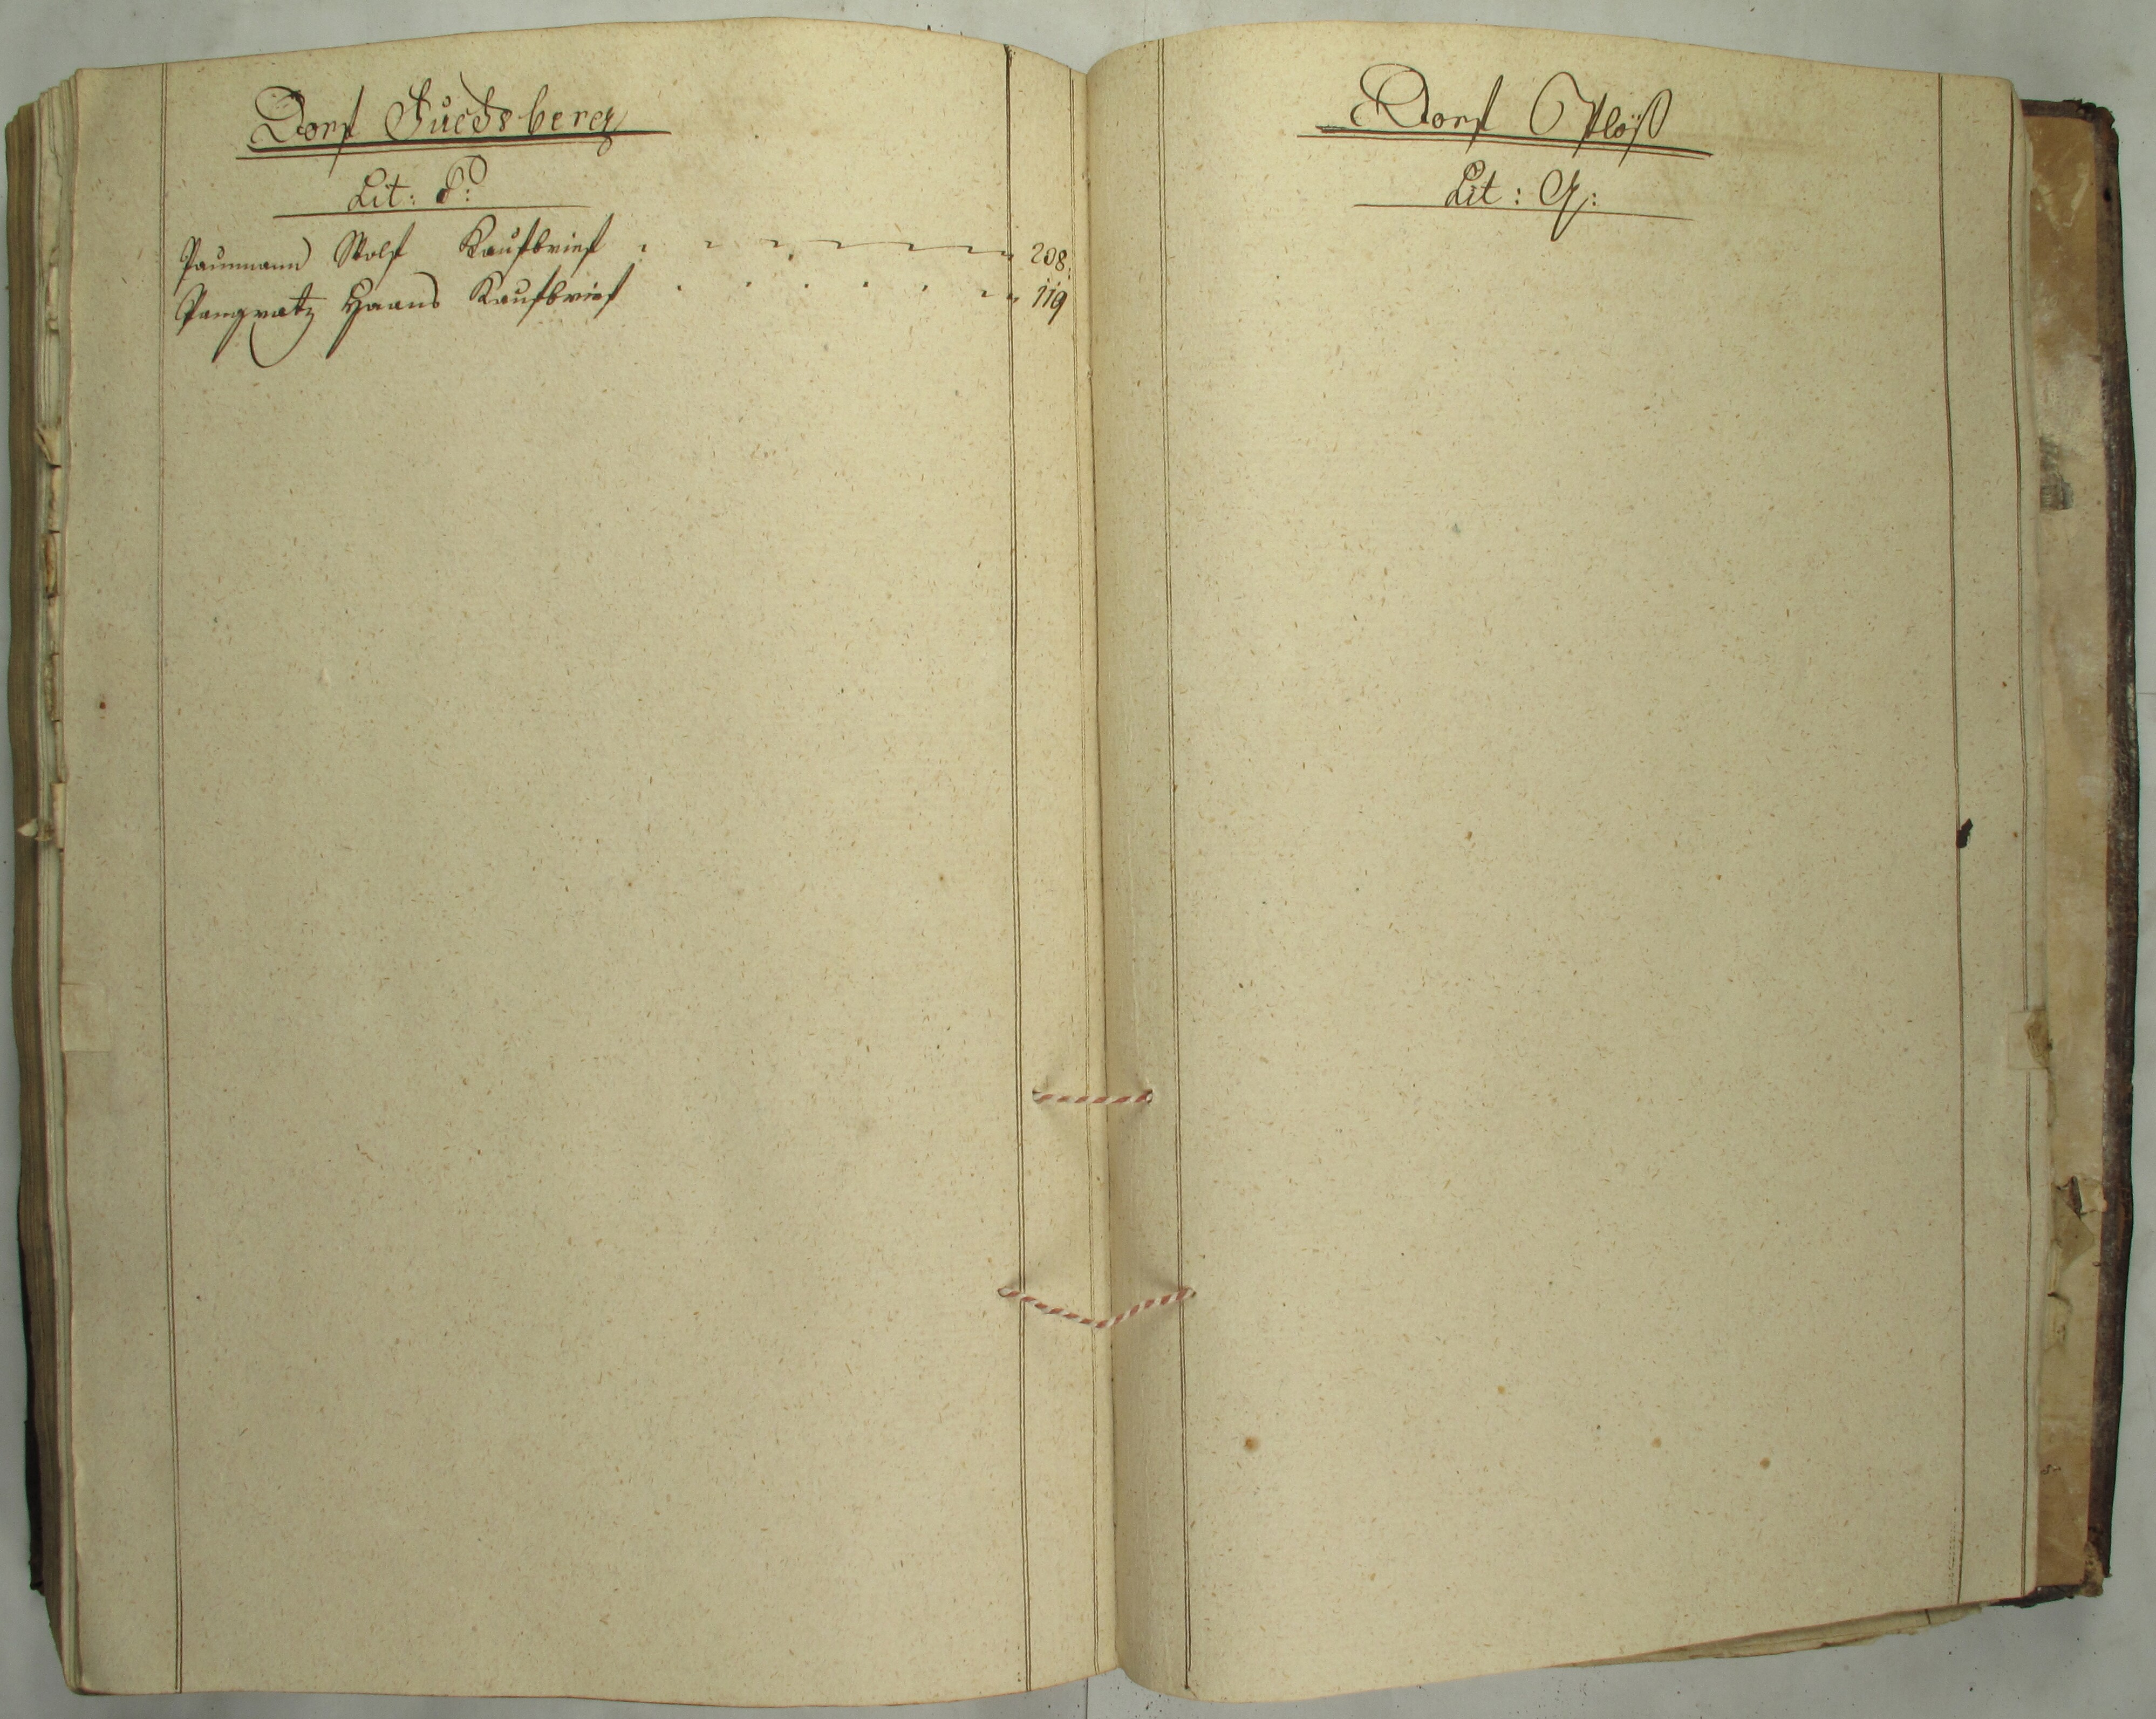 Dorf Fuchsberg
Lit: P:
Paumann Wolf Kaufbrief 208:
Pangratz Hanns Kaufbrief 119
Dorf Plöß
Lit: Q: